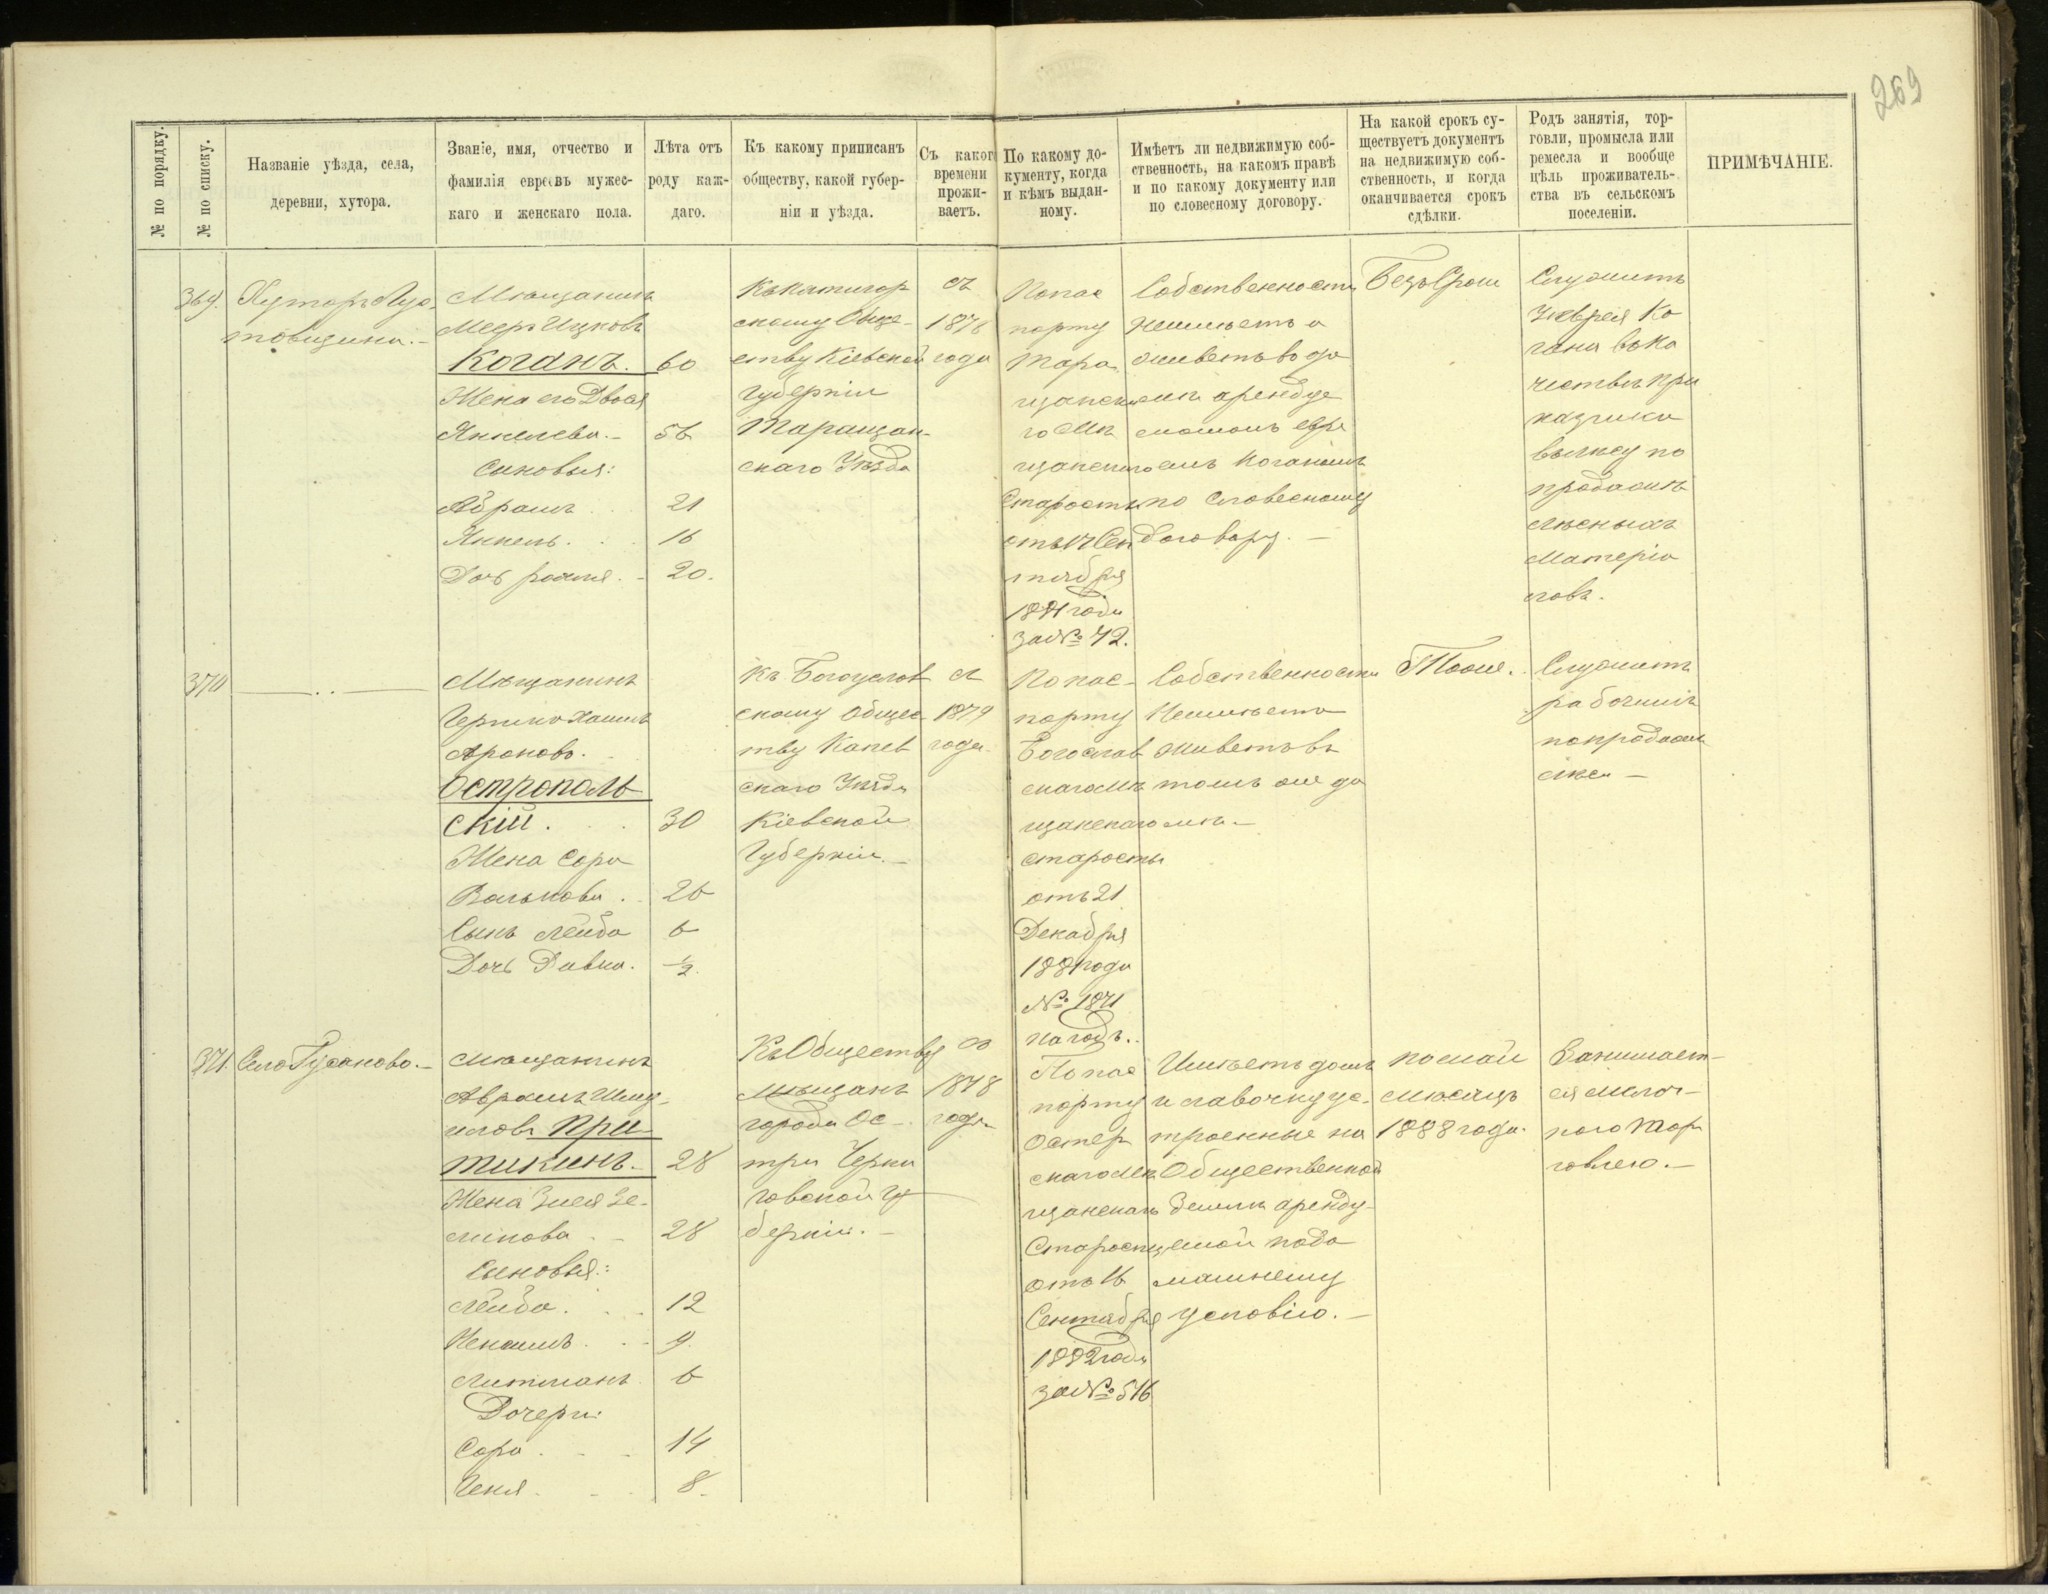 269
№ по порядку.
№ по списку.
Названіе уѣзда, села,
деревни, хутора.
Званіе, имя, отчество и
фамилія евреевъ мужес-
каго и женскаго пола.
Лѣта отъ
роду каж-
даго.
Къ какому приписанъ
обществу, какой губер-
ніи и уѣзда.
Съ какого
времени
прожи-
ваетъ.
По какому до-
кументу, когда
и кѣмъ выдан-
ному.
Имѣетъ ли недвижимую соб-
ственность, на какомъ правѣ
и по какому документу или
по словесному договору.
На какой срокъ су-
ществуетъ документъ
на недвижимую соб-
ственность, и когда
оканчивается срокъ
сдѣлки.
Родъ занятія, тор-
говли, промысла или
ремесла и вообще
цѣль проживатель-
ства въ сельскомъ
поселеніи.
ПРИМѢЧАНІЕ.
369.
Хуторъ
товщина.
Мѣщанинъ
Мееръ Ицковъ
Коганъ. 60
Жена его Двося
Янкелева. 56
Сыновья:
Абрамъ 21
Янкель. 16
Дочь 20.
скому Обще-
ству Кіевской
Губерніи
Таращан-
скаго Уѣзда
съ
1876
года
По пас
порту
Тара
щанска
го Мѣ
щанскаго
Старосты
отъ 14 Сен
тября
1881 года
за № 42.
Собственности
неимѣетъ а
живетъ въ до
мѣ арендуе
момъ евре
емъ Коганомъ
по словесному
договору.
Безъ Срока
Служитъ
у еврея Ко
гана въ ка
чествѣ при
казчика
въ лесу по
продажѣ
лѣсныхъ
Матеріа
ловъ.
370
Мѣщанинъ
Ароновъ.
Острополь
скій. 30
Жена Сора
Волькова. 26
Сынъ Лейба 6
Дочь Ривка. ½.
Къ Богуслав
скому Общес
тву Канев
скаго Уѣзда
Кіевской
Губерніи.
съ
1879
года
По пас-
порту
Богослав
скаго Мѣ
щанскаго
старосты
отъ 21
Декабря
1881 года
№ 1871
на годъ.
Собственности
Неимѣетъ
живетъ въ
томъ же до
мѣ.
Тоже.
Служитъ
рабочимъ
по продажѣ
лѣса
371.
Село Гусаково.
Мѣщанинъ
Аврамъ Шму-
иловъ При
тикинъ. 28
Жена Зися Зе-
ликова. 28
Сыновья:
Лейба. 12
9.
Литманъ 6
Дочери:
Сора 14
Геня. 8.
Къ Обществу
Мѣщанъ
города Ос-
тра Черни
говской Гу
берніи.
съ
1878
года
По пас
порту
Остер
скаго Мѣ
щанскаго
Старосты
отъ 16
Сентября
1882 года
за № 516
Имѣетъ домъ
и лавочку ус-
троенные на
Общественной
Землѣ аренду-
емой по до
машнему
условію.
по май
Мѣсяцъ
1888 года.
Занимает-
ся мелоч-
ного тор
говлею.